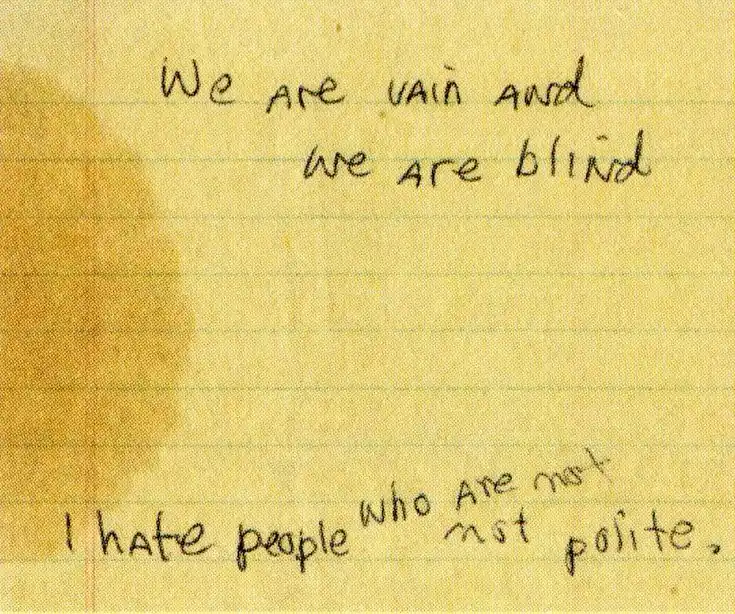 We are vain and
we are blind
I hate people who are not
not polite.